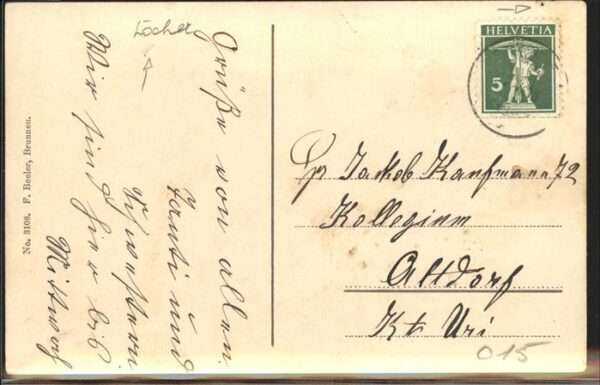 Löcher
Grüße von allen.
Tanti und
Schwestern
Wir sind hier bis
Mittwoch
No. 3108. F. Beeler, Brunnen.
HELVETIA
5
Jakob Kaufmann 72
Kollegium
Altdorf
Kt. Uri
015